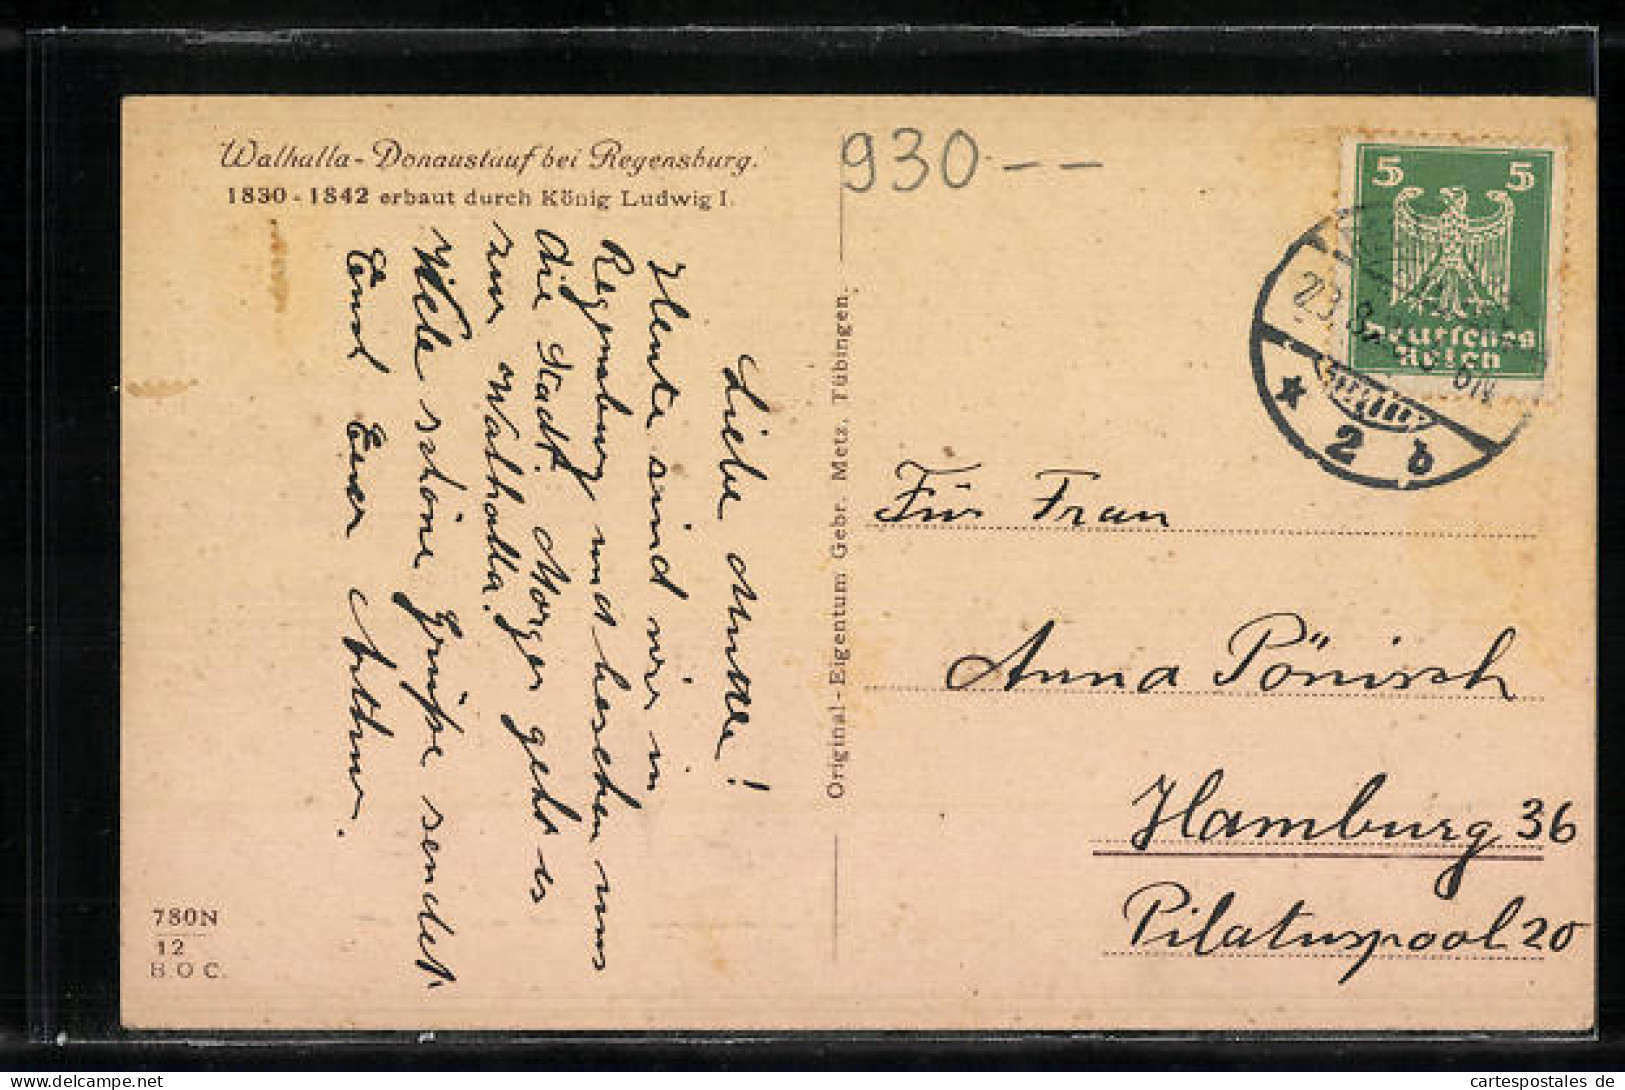 Walhalla-Donaustauf bei Regensburg.
1830 - 1842 erbaut durch König Ludwig I.
930 - -
5 5
Deutsches
Reich
2 b
Liebe Anna!
Heute sind wir in
Regensburg und besehen uns
die Stadt. Morgen geht es
zur Walhalla.
Viele schöne Grüße sendet
Euer Arthur.
Original-Eigentum Gebr. Metz, Tübingen.
Für Frau
Anna Pönisch
Hamburg 36
Pilatuspool 20
780N
12
B.O.C.
cartespostales de